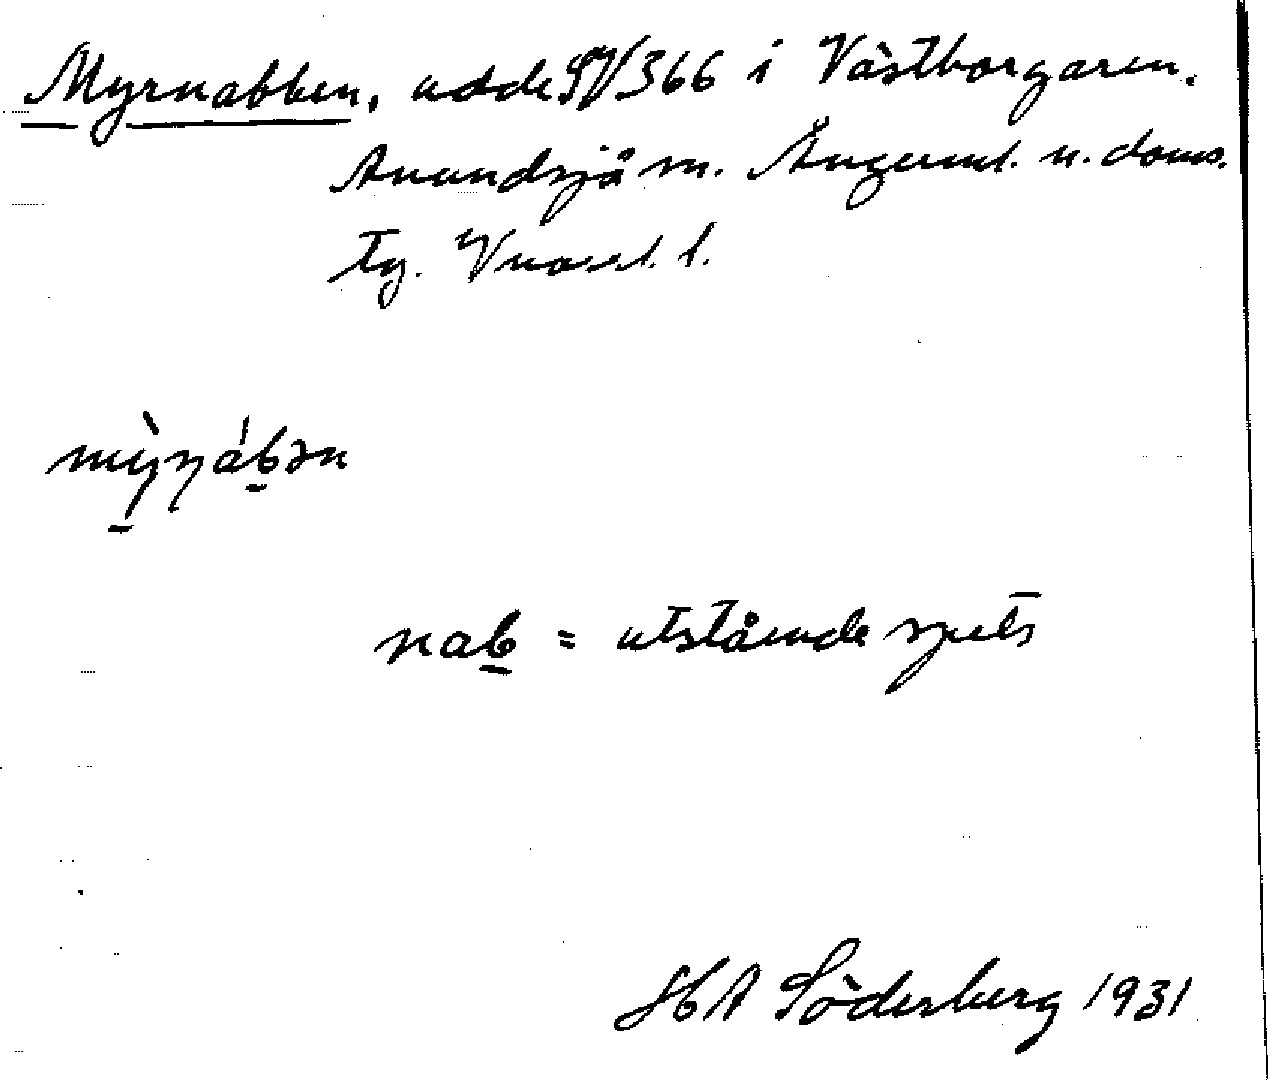 Myrnabben, udde SV 366 i Västborgaren.
Anundsjö sn. Ångerml. n. doms.
tg. Vnorrl. l.
mỳṇábən
nab = utstående spets
HA Söderberg 1931